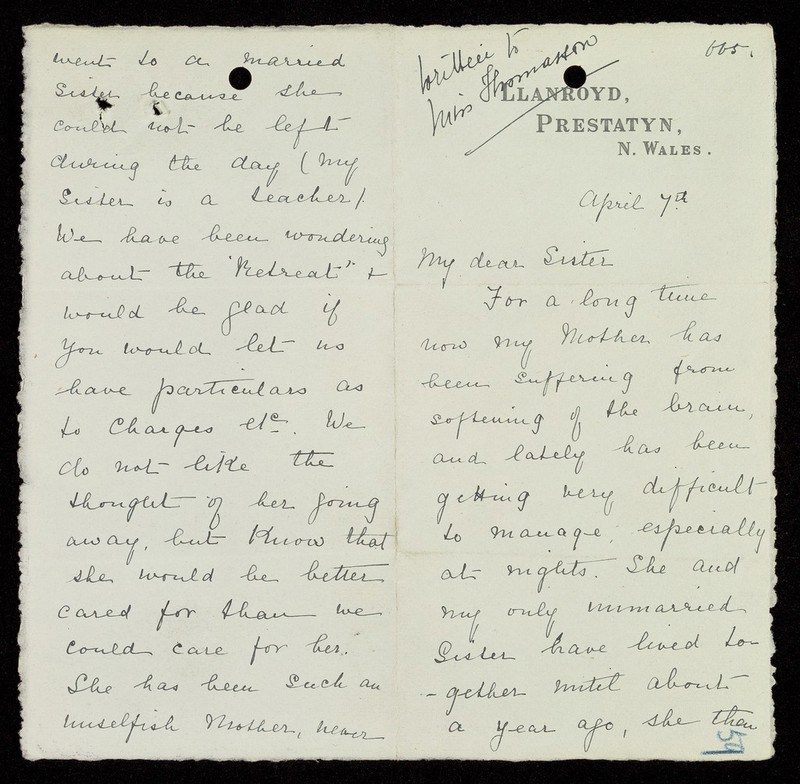 written to
Miss Thomasson
005.
LLANROYD,
PRESTATYN,
N. WALES.
April 7th
My dear Sister
For a long time
now my Mother has
been suffering from
softening of the brain,
and lately has been
getting very difficult
to manage, especially
at nights. She and
my only unmarried
Sister have lived to-
-gether until about
a year ago, she then
59
went to a married
Sister because she
could not be left
during the day (my
Sister is a teacher).
We have been wondering
about the "Retreat" &
would be glad if
you would let us
have particulars as
to Charges etc. We
do not like the
thought of her going
away, but know that
she would be better
cared for than we
could care for her.
She has been such an
unselfish Mother, never